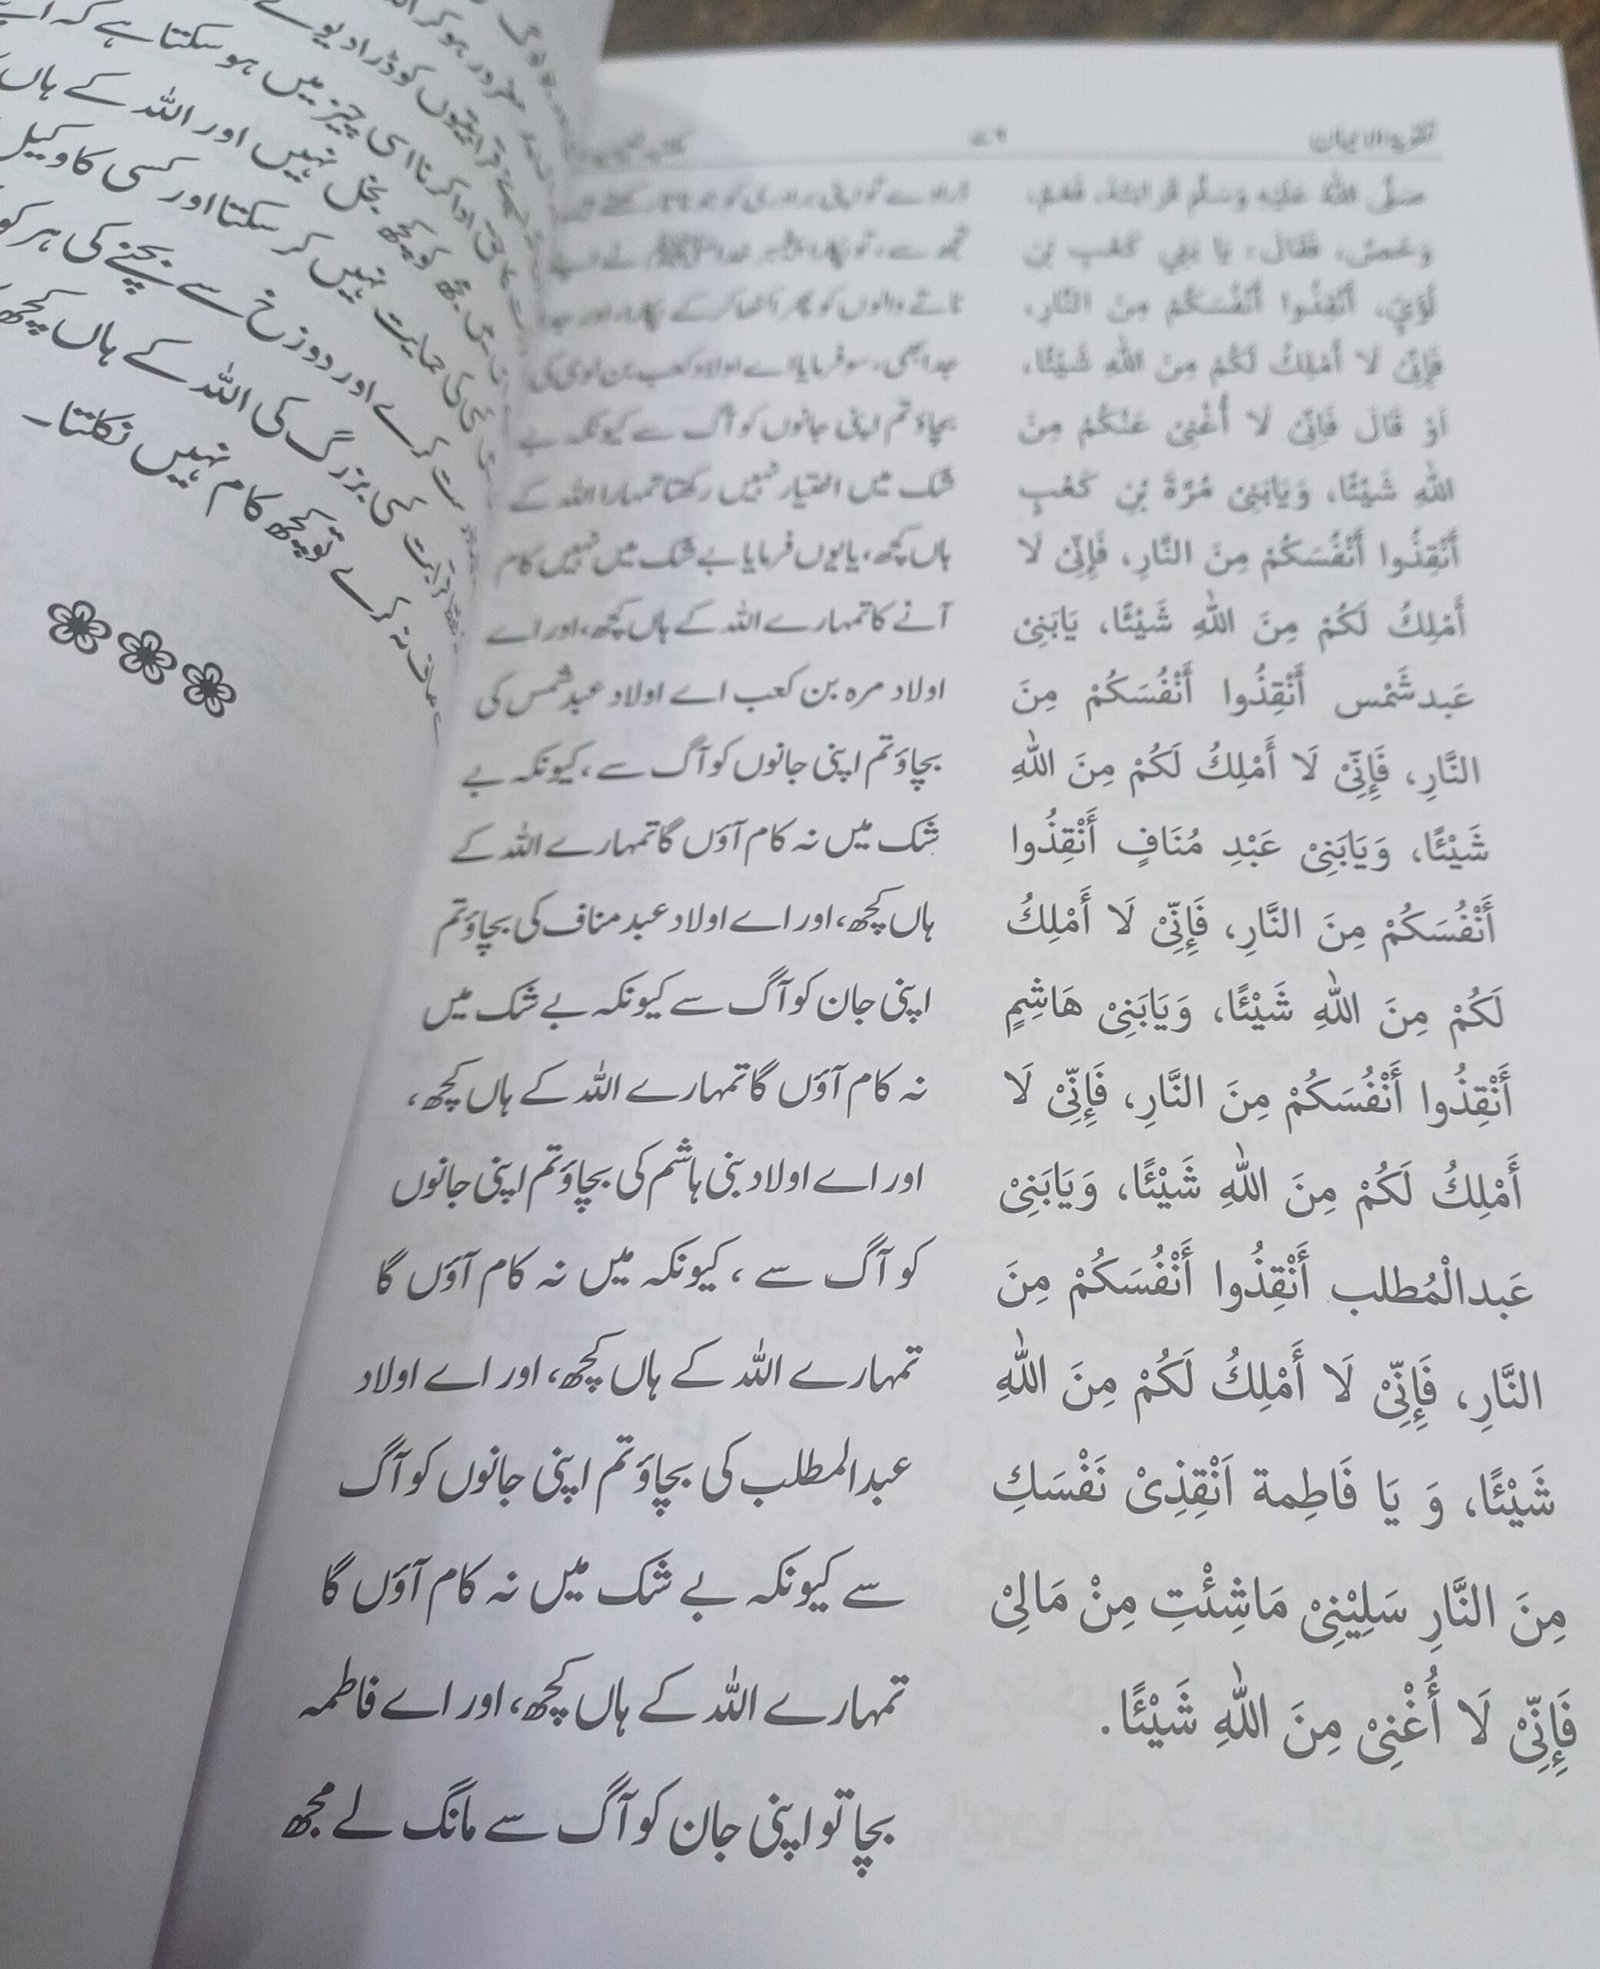 تقویۃ الایمان
صَلَّى اللهُ عَلَيْهِ وَسَلَّم قَرابَتَهٗ، فَعَمَّ،
وَخَصَّ، فَقَالَ، يَا بَنِي كَعْبِ بْنِ
لُؤَيٍّ، أَنْقِذُوا أَنْفُسَكُمْ مِنَ النَّارِ،
فَإِنِّىْ لَا أَمْلِكُ لَكُمْ مِنَ اللهِ شَيْئًا،
اَوْ قَالَ فَاِنِّىْ لَا أُغْنِىْ عَنْكُمْ مِنَ
اللهِ شَيْئًا، وَيَابَنِىْ مُرَّةَ بْنِ كَعْبٍ
أَنْقِذُوا أَنْفُسَكُمْ مِنَ النَّارِ، فَإِنِّىْ لَا
أَمْلِكُ لَكُمْ مِنَ اللهِ شَيْئًا، يَابَنِىْ
عَبدشَمْس أَنْقِذُوا أَنْفُسَكُمْ مِنَ
النَّارِ، فَإِنِّىْ لَا أَمْلِكُ لَكُمْ مِنَ اللهِ
شَيْئًا، وَيَابَنِىْ عَبْدِ مُنَافٍ أَنْقِذُوا
أَنْفُسَكُمْ مِنَ النَّارِ، فَإِنِّىْ لَا أَمْلِكُ
لَكُمْ مِنَ اللهِ شَيْئًا، وَيَابَنِىْ هَاشِمٍ
أَنْقِذُوا أَنْفُسَكُمْ مِنَ النَّارِ، فَإِنِّىْ لَا
أَمْلِكُ لَكُمْ مِنَ اللهِ شَيْئًا، وَيَابَنِىْ
عَبدالْمُطلب أَنْقِذُوا أَنْفُسَكُمْ مِنَ
النَّارِ، فَإِنِّىْ لَا أَمْلِكُ لَكُمْ مِنَ اللهِ
شَيْئًا، وَ يَا فَاطِمة اَنْقِذِىْ نَفْسَكِ
مِنَ النَّارِ سَلِيْنِىْ مَاشِئْتِ مِنْ مَالِىْ
فَإِنِّىْ لَا أُغْنِىْ مِنَ اللهِ شَيْئًا.
ڈراوے تو اپنی برادری کو جو
تجھ سے، تو پکارا پیغمبر خدا ﷺ نے اپنے
ناتے والوں کو پھر اکٹھا کر کے پکارا، اور جدا
جدا بھی، سو فرمایا اے اولاد کعب بن لوی کی
بچاؤ تم اپنی جانوں کو آگ سے کیونکہ بے
شک میں اختیار نہیں رکھتا تمہارا اللہ کے
ہاں کچھ، یا یوں فرمایا بے شک میں نہیں کام
آنے کا تمہارے اللہ کے ہاں کچھ، اور اے
اولاد مرہ بن کعب اے اولاد عبد شمس کی
بچاؤ تم اپنی جانوں کو آگ سے، کیونکہ بے
شک میں نہ کام آؤں گا تمہارے اللہ کے
ہاں کچھ، اور اے اولاد عبد مناف کی بچاؤ تم
اپنی جان کو آگ سے کیونکہ بے شک میں
نہ کام آؤں گا تمہارے اللہ کے ہاں کچھ،
اور اے اولاد بنی ہاشم کی بچاؤ تم اپنی جانوں
کو آگ سے، کیونکہ میں نہ کام آؤں گا
تمہارے اللہ کے ہاں کچھ، اور اے اولاد
عبدالمطلب کی بچاؤ تم اپنی جانوں کو آگ
سے کیونکہ بے شک میں نہ کام آؤں گا
تمہارے اللہ کے ہاں کچھ، اور اے فاطمہ
بچا تو اپنی جان کو آگ سے مانگ لے مجھ
کو ڈراد یوے
چیز میں ہو سکتا ہے کہ اپنے
بخل نہیں اور اللہ کے ہاں
حمایت نہیں کر سکتا اور کسی کا وکیل
کرے اور دوزخ سے بچنے کی ہر کو
کسی بزرگ کی اللہ کے ہاں کچھ
نہ کرے تو کچھ کام نہیں نکلتا۔